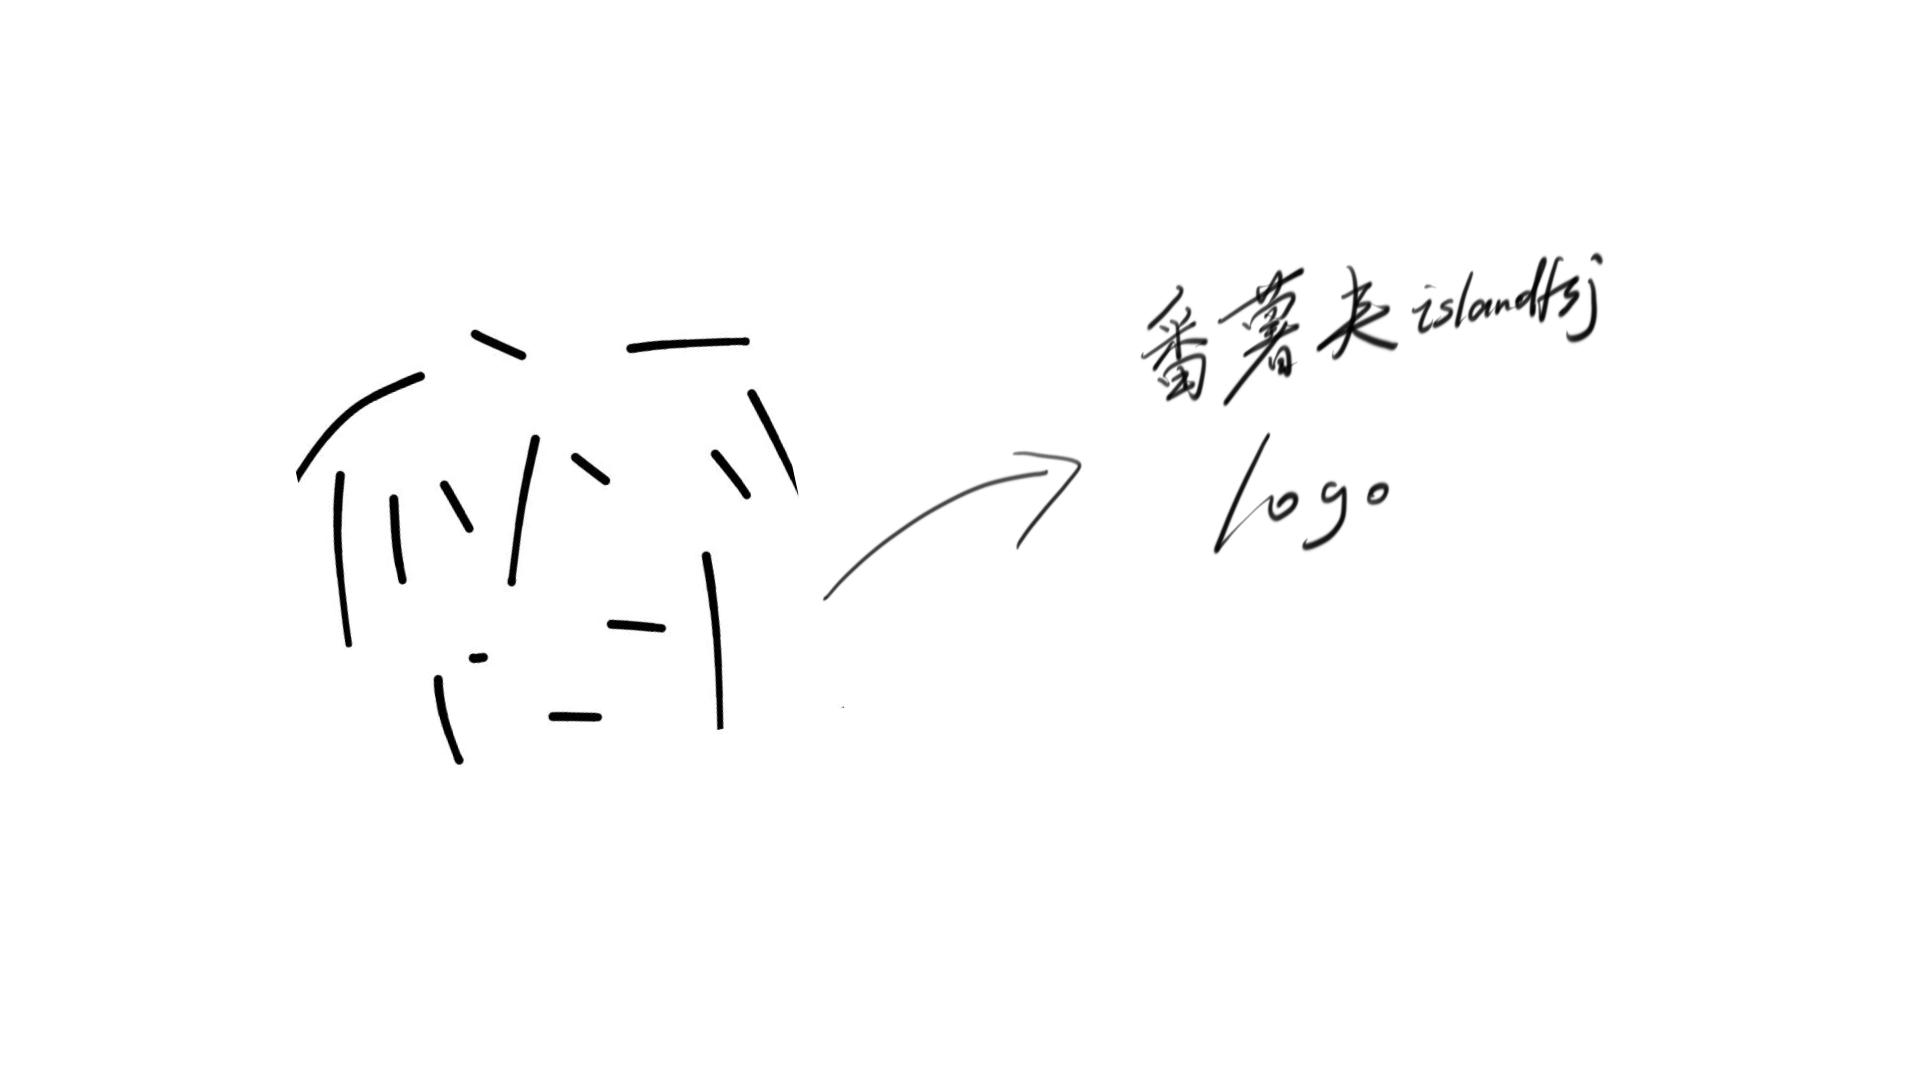 番薯夹islandfsj
logo